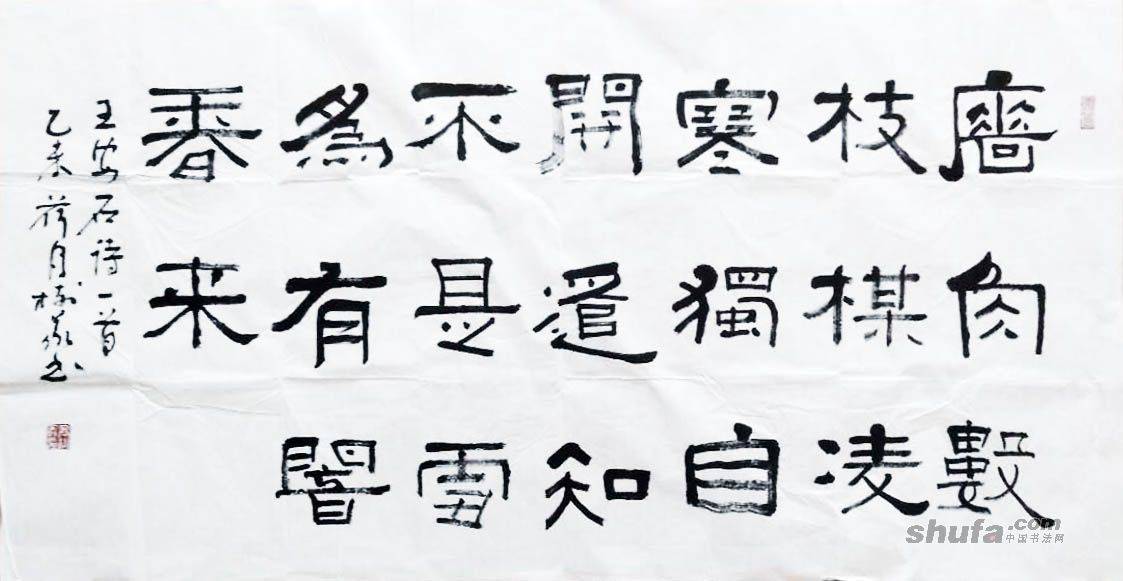 廧角數
枝楳凌
寒獨自
開遙知
不是雪
爲有闇
香来
王安石诗一首
乙未荷月书
shufa.com
中国书法网